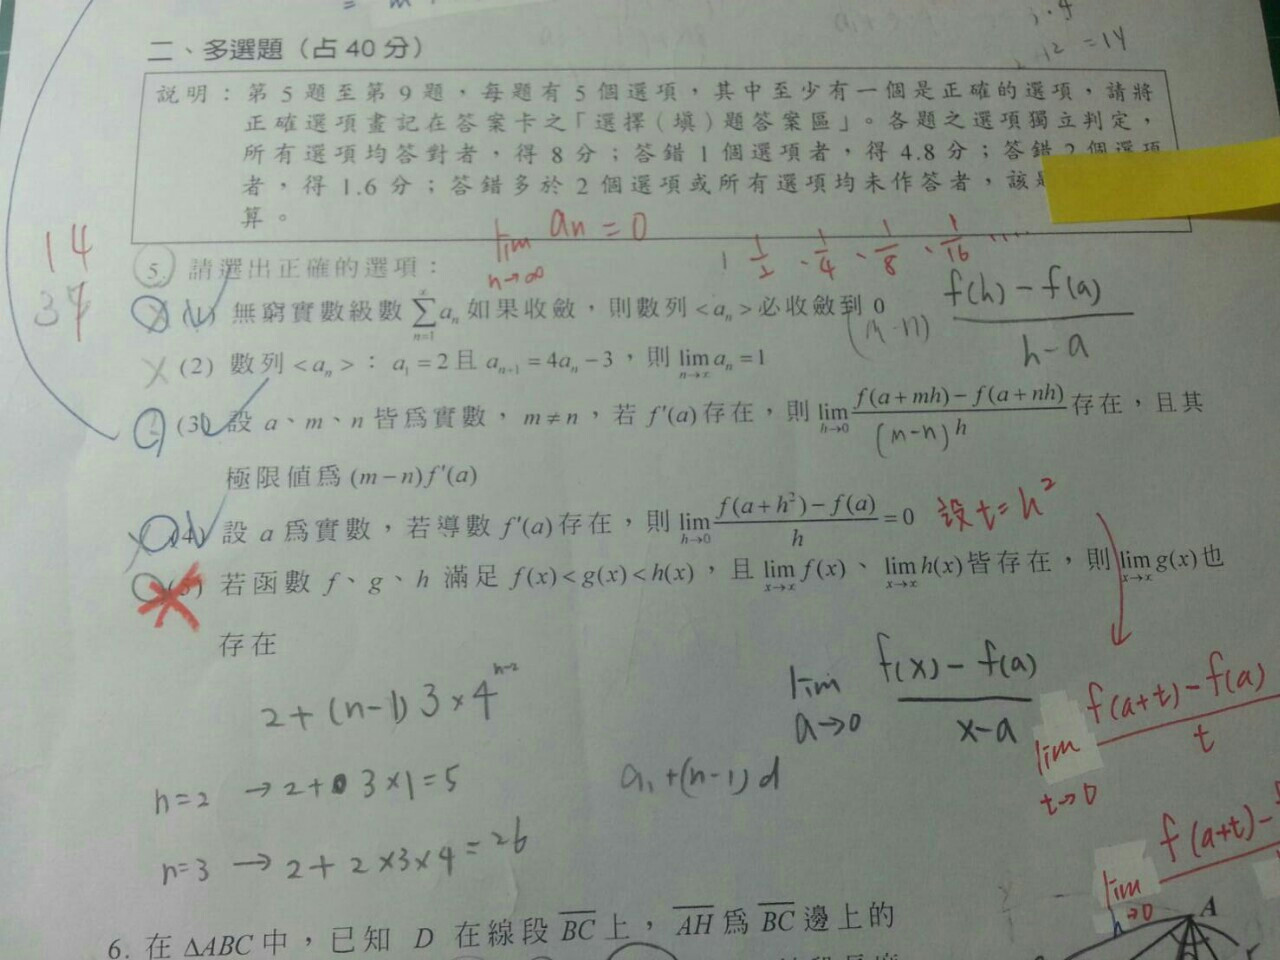 二、多選題（占 40 分）
說明：第 5 題至第 9 題，每題有 5 個選項，其中至少有一個是正確的選項，請將
正確選項畫記在答案卡之「選擇（填）題答案區」。各題之選項獨立判定，
所有選項均答對者，得 8 分；答錯 1 個選項者，得 4.8 分；答錯 2 個選項
者，得 1.6 分；答錯多於 2 個選項或所有選項均未作答者，該是
算。
lim n→∞ an = 0
1 1/2 、1/4 、1/8 、1/16 ....
14
37
5. 請選出正確的選項：
(1) 無窮實數級數 ∑ n=1 ∞ an 如果收斂，則數列 <an> 必收斂到 0
(m-n)
f(h) - f(a) / h - a
(2) 數列 <an>：a1 = 2 且 an+1 = 4an − 3，則 lim n→∞ an = 1
(3) 設 a、m、n 皆為實數，m ≠ n，若 f'(a) 存在，則 lim h→0 f(a+mh) − f(a+nh) / (m-n) h 存在，且其
極限值為 (m−n)f'(a)
(4) 設 a 為實數，若導數 f'(a) 存在，則 lim h→0 f(a+h²) − f(a) / h = 0
設 t = h²
(5) 若函數 f、g、h 滿足 f(x) < g(x) < h(x)，且 lim x→∞ f(x)、lim x→∞ h(x) 皆存在，則 lim x→∞ g(x) 也
存在
2 + (n-1) 3 × 4^n-2
lim a→0 f(x) - f(a) / x-a
lim t→0 f(a+t) - f(a) / t
n=2 → 2 + 3×1 = 5
a1 + (n-1) d
n=3 → 2 + 2×3×4 = 26
lim h→0 f(a+t) -
A
6. 在 ΔABC 中，已知 D 在線段 BC 上，AH 為 BC 邊上的